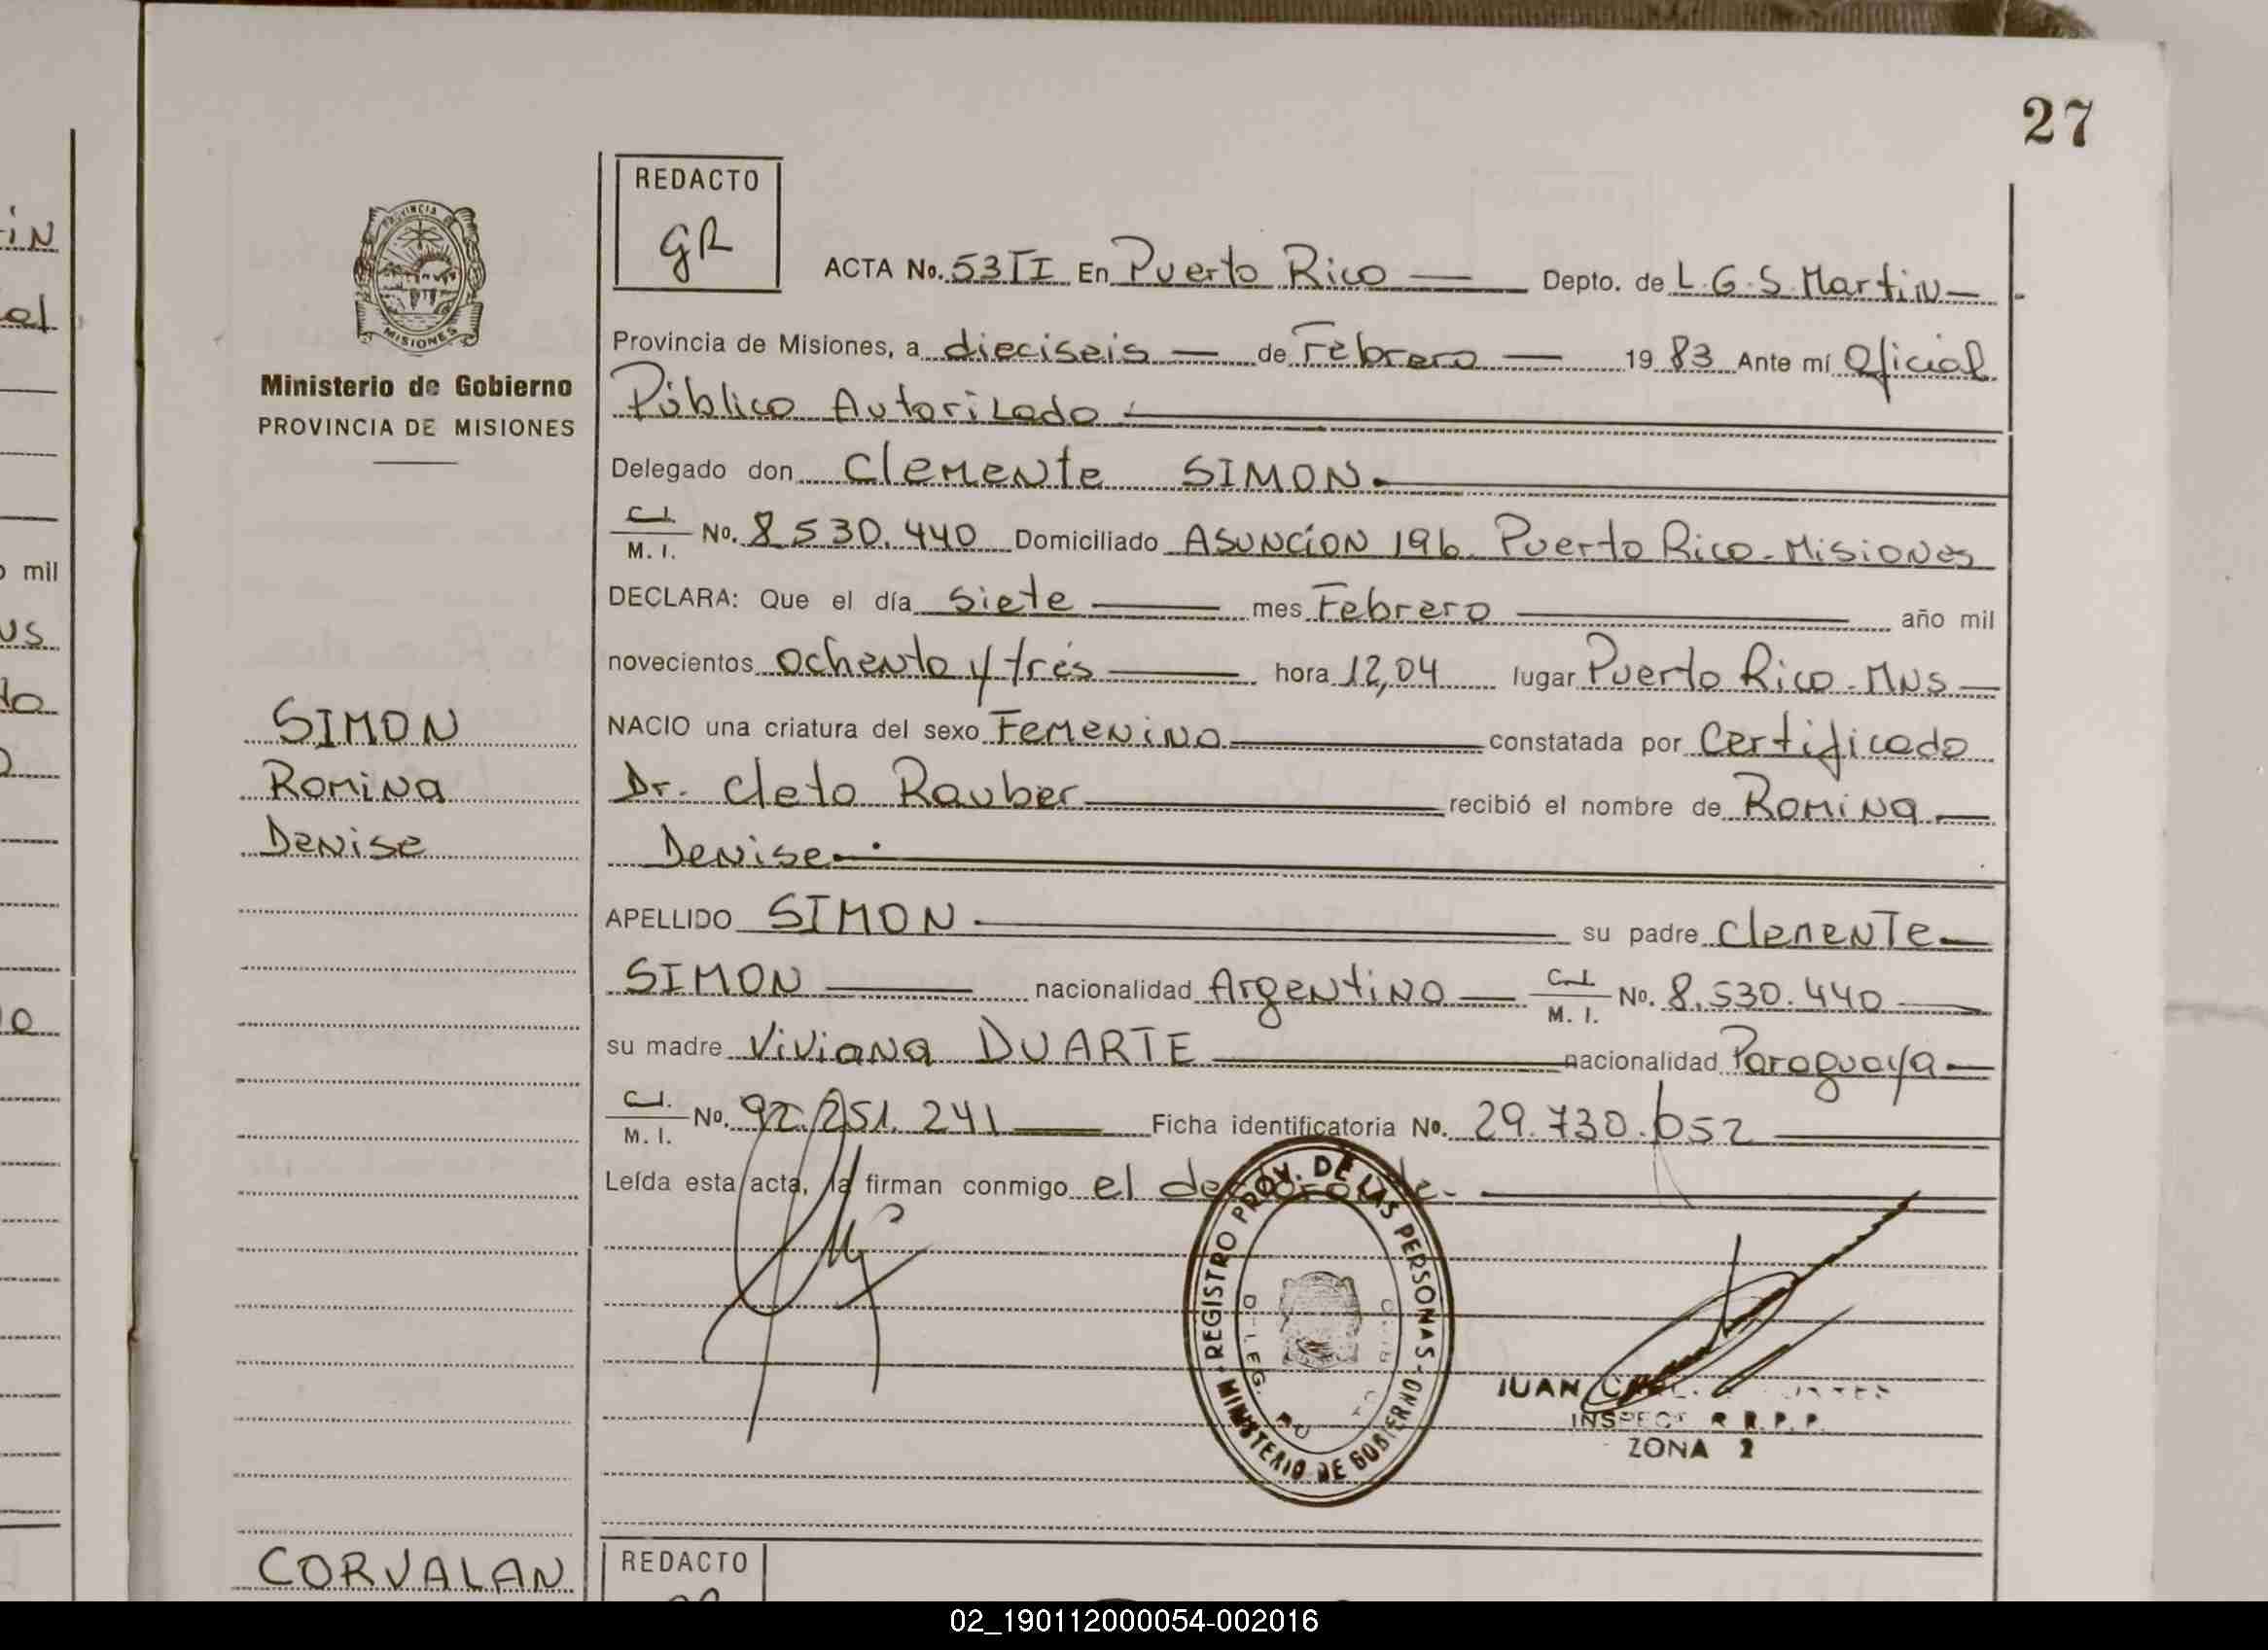 27
REDACTO
GR
PROVINCIA DE
MISIONES
Ministerio de Gobierno
PROVINCIA DE MISIONES
ACTA No. 53 II En Puerto Rico Depto. de L.G.S. Martin
Provincia de Misiones, a dieciseis de Febrero 1983 Ante mí Oficial
Público Autorizado
Delegado don Clemente SIMON.
C.I. M. I. No. 8.530.440 Domiciliado ASUNCION 196 Puerto Rico - Misiones
DECLARA: Que el día siete mes Febrero año mil
novecientos ochenta y tres hora 12,04 lugar Puerto Rico - Mns
NACIO una criatura del sexo Femenino constatada por Certificado
Dr. Cleto Rauber recibió el nombre de Romina
Denise
APELLIDO SIMON su padre Clemente
SIMON nacionalidad Argentino C.I. M. I. No. 8.530.440
su madre Viviana DUARTE nacionalidad Paraguaya
C.I. M. I. No. 92.251.241 Ficha identificatoria No. 29.730.652
Leída esta acta, la firman conmigo el
SIMON
Romina
Denise
REGISTRO PROV. DE LAS PERSONAS
MINISTERIO DE GOBIERNO
JUAN
INSPECT R R.P.P.
ZONA 2
CORVALAN
REDACTO
in
al
o mil
us
do
o
02_190112000054-002016